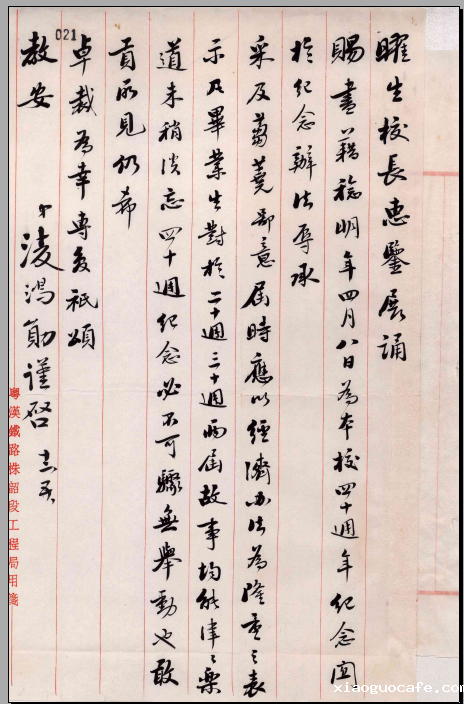 曜生校長惠鑒展誦
賜書藉稔明年四月八日為本校四十週年紀念囬
於紀念辦法辱承
采及蒭蕘鄙意屆時應以經濟办法為隆重之表
示及畢業生對於二十週三十週兩屆故事均能津々樂
道未稍淡忘四十週紀念必不可驟無舉動也敢
貢所見仍希
卓裁為幸專复祇頌
教安
弟凌鴻勛謹啓
粵漢鐵路株韶段工程局用箋
021
xiaoguocafe.com